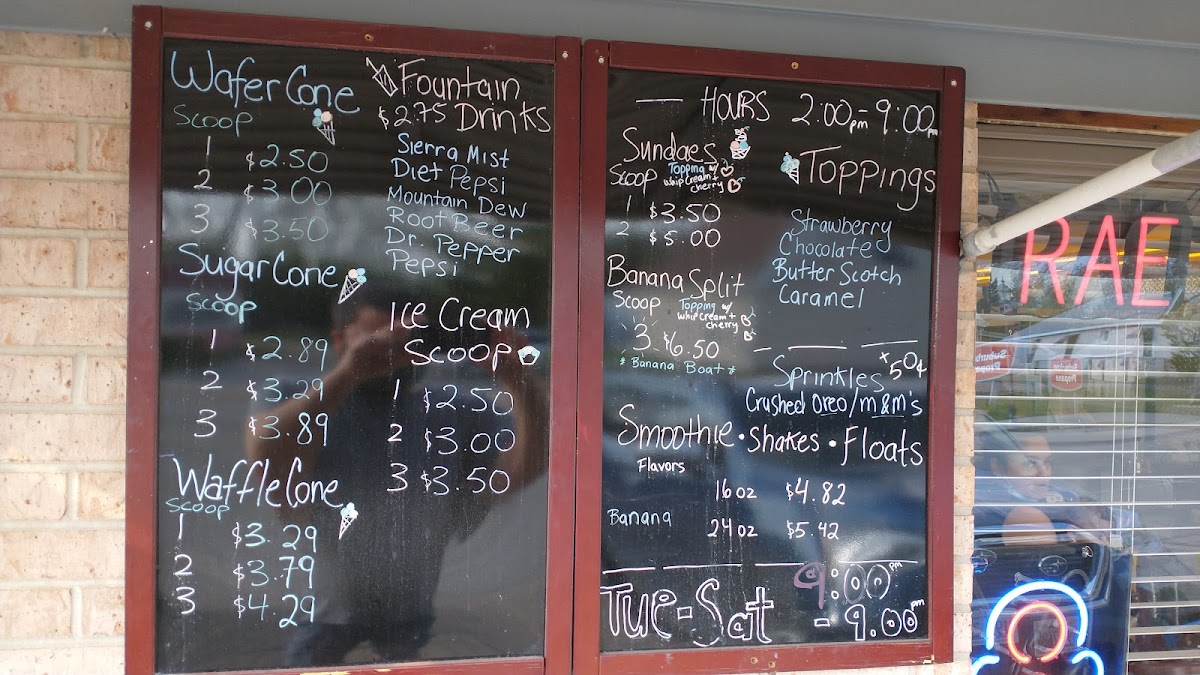 Wafer Cone
Scoop
1 $2.50
2 $3.00
3 $3.50
Sugar Cone
Scoop
1 $2.89
2 $3.29
3 $3.89
Waffle Cone
Scoop
1 $3.29
2 $3.79
3 $4.29
Fountain
$2.75 Drinks
Sierra Mist
Diet Pepsi
Mountain Dew
Root Beer
Dr. Pepper
Pepsi
Ice Cream
Scoop
1 $2.50
2 $3.00
3 $3.50
HOURS 2:00pm-9:00pm
Sundaes
Scoop Topping w/
whip cream +
cherry
1 $3.50
2 $5.00
Banana Split
Scoop Topping w/
whip cream +
cherry
3 $6.50
* Banana Boat *
Toppings
Strawberry
Chocolate
Butter Scotch
Caramel
Sprinkles +50¢
Crushed Oreo/m&m's
Smoothie • Shakes • Floats
Flavors
16oz $4.82
Banana 24oz $5.42
Tue-Sat 9:00pm
- 9:00pm
RAE